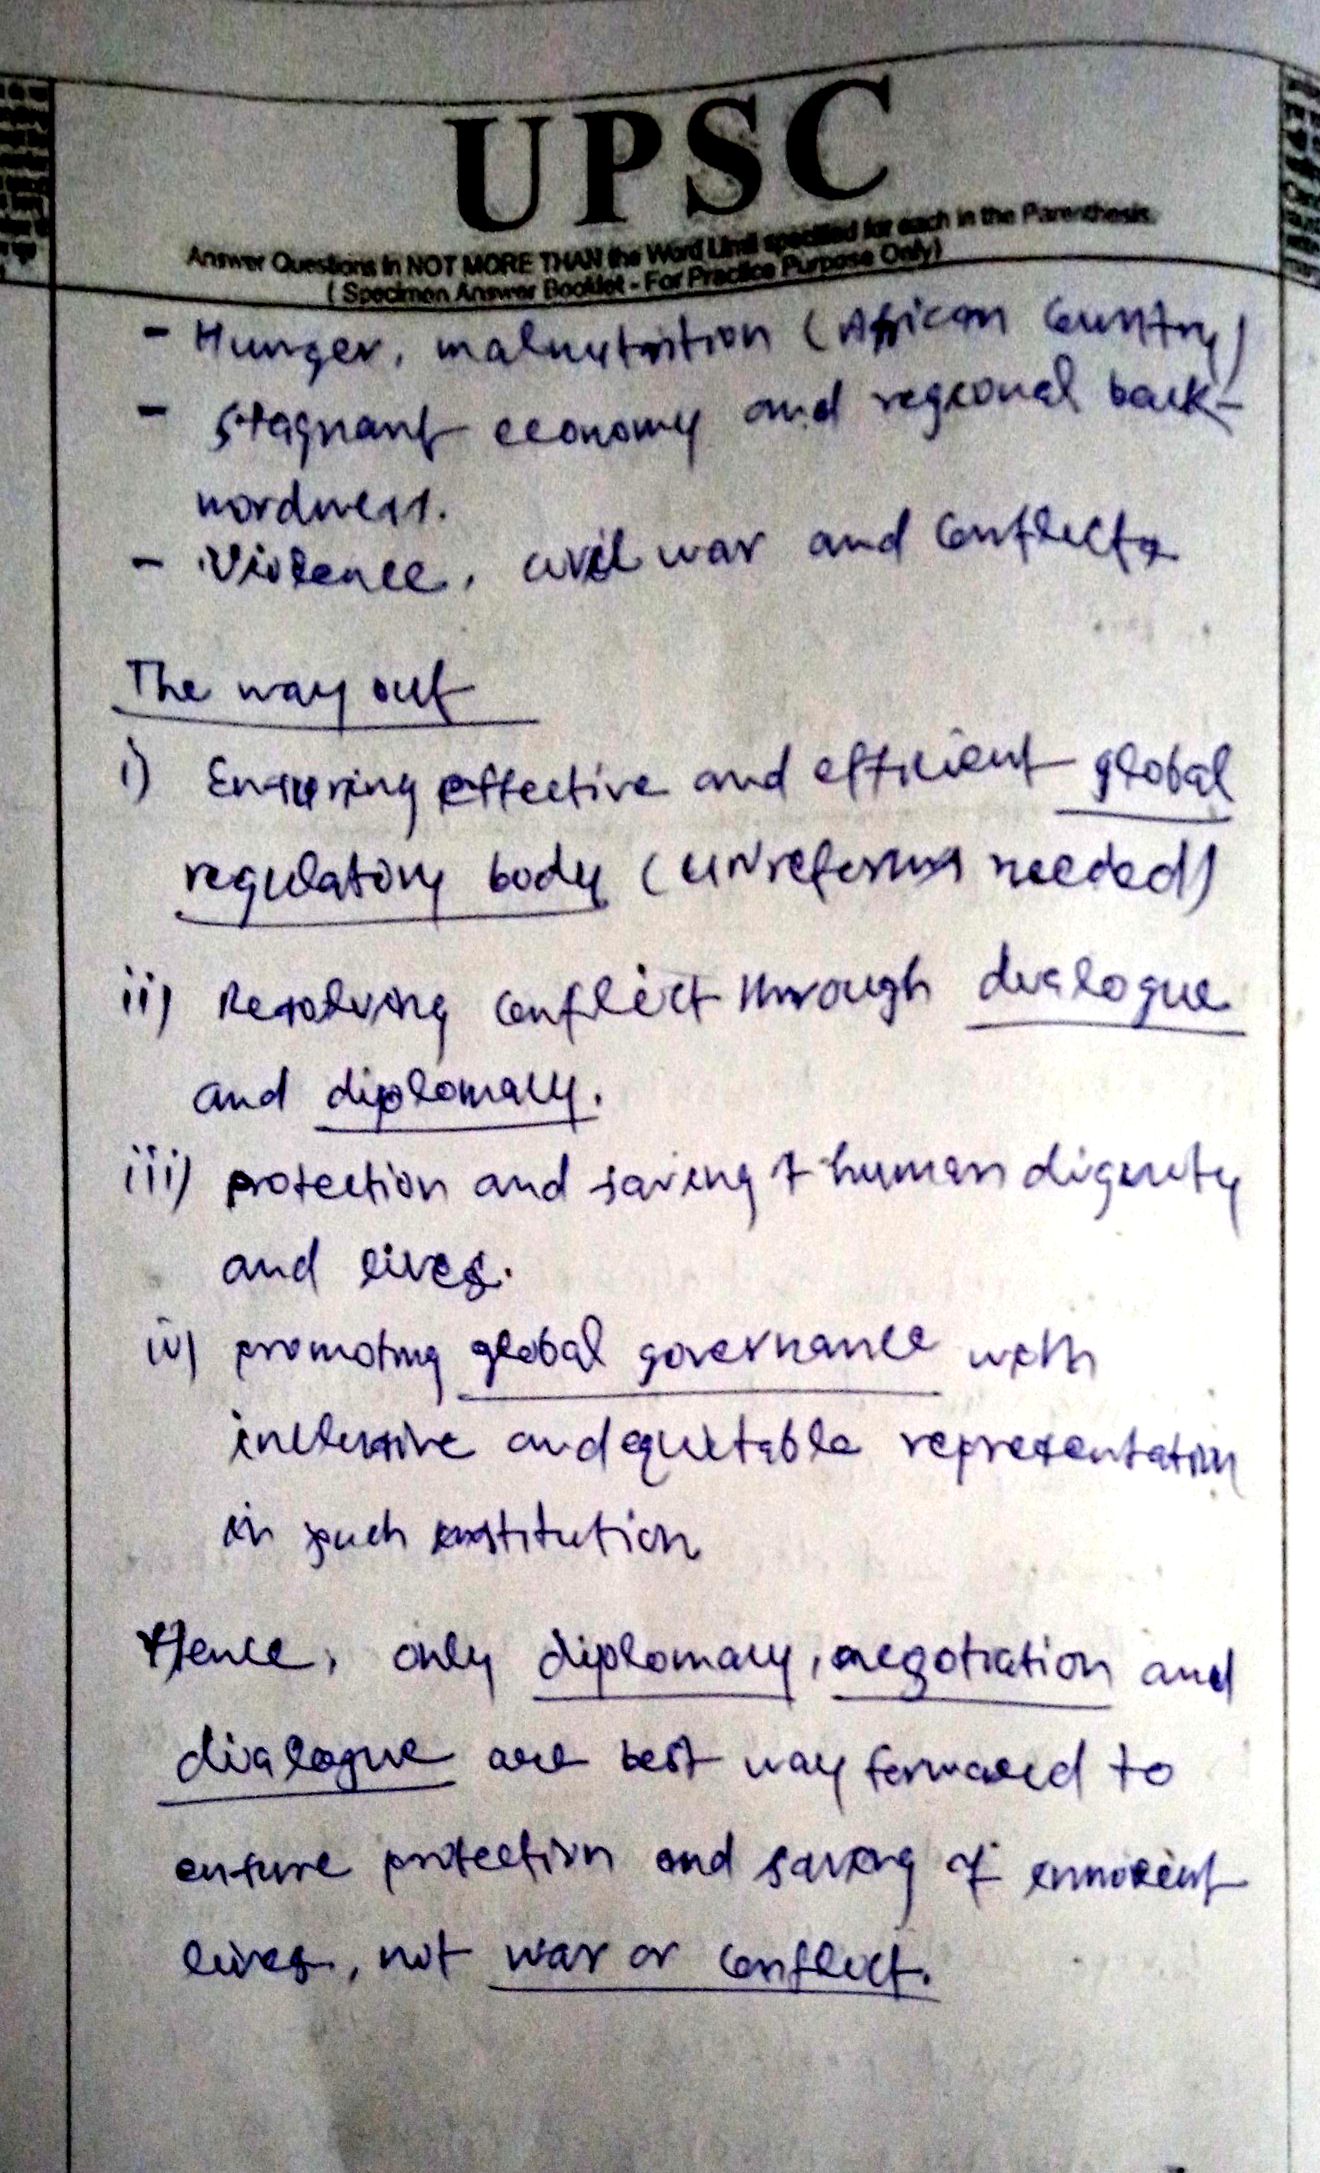 UPSC
Answer Questions in NOT MORE THAN the Word Limit specified for each in the Parenthesis.
( Specimen Answer Booklet - For Practice Purpose Only)
- Hunger, malnutrition (African Country)
- Stagnant economy and regional back-
wordness.
- Violence, civil war and conflicts
The way out
i) Ensuring effective and efficient global
regulatory body (UN reforms needed)
ii) Resolving conflict through dialogue
and diplomacy.
iii) protection and saving of human dignity
and lives.
iv) promoting global governance with
inclusive and equitable representation
in such institution
Hence, only diplomacy, negotiation and
dialogue are best way forward to
ensure protection and saving of innocent
lives, not war or conflict.